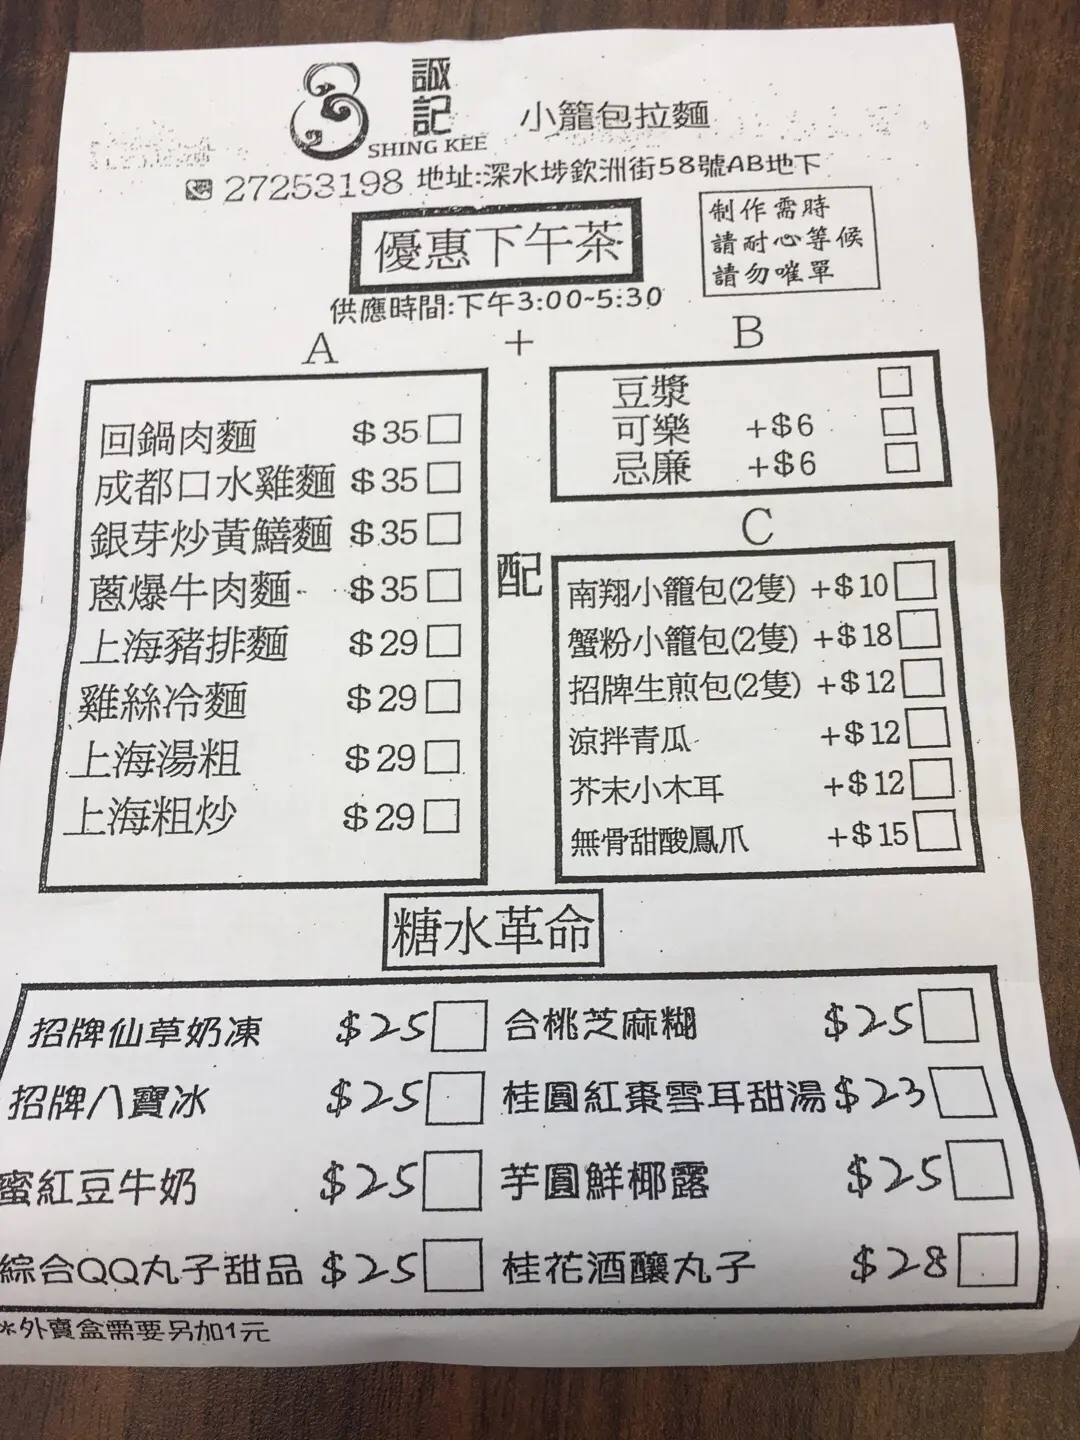 誠記
SHING KEE
小籠包拉麵
27253198 地址:深水埗欽洲街58號AB地下
優惠下午茶
制作需時
請耐心等候
請勿嗺單
供應時間:下午3:00~5:30
A + B
回鍋肉麵 $35
成都口水雞麵 $35
銀芽炒黃鱔麵 $35
蔥爆牛肉麵 $35
上海豬排麵 $29
雞絲冷麵 $29
上海湯粗 $29
上海粗炒 $29
配
豆漿
可樂 +$6
忌廉 +$6
C
南翔小籠包(2隻) +$10
蟹粉小籠包(2隻) +$18
招牌生煎包(2隻) +$12
涼拌青瓜 +$12
芥末小木耳 +$12
無骨甜酸鳳爪 +$15
糖水革命
招牌仙草奶凍 $25
合桃芝麻糊 $25
招牌八寶冰 $25
桂圓紅棗雪耳甜湯 $23
蜜紅豆牛奶 $25
芋圓鮮椰露 $25
綜合QQ丸子甜品 $25
桂花酒釀丸子 $28
*外賣盒需要另加1元